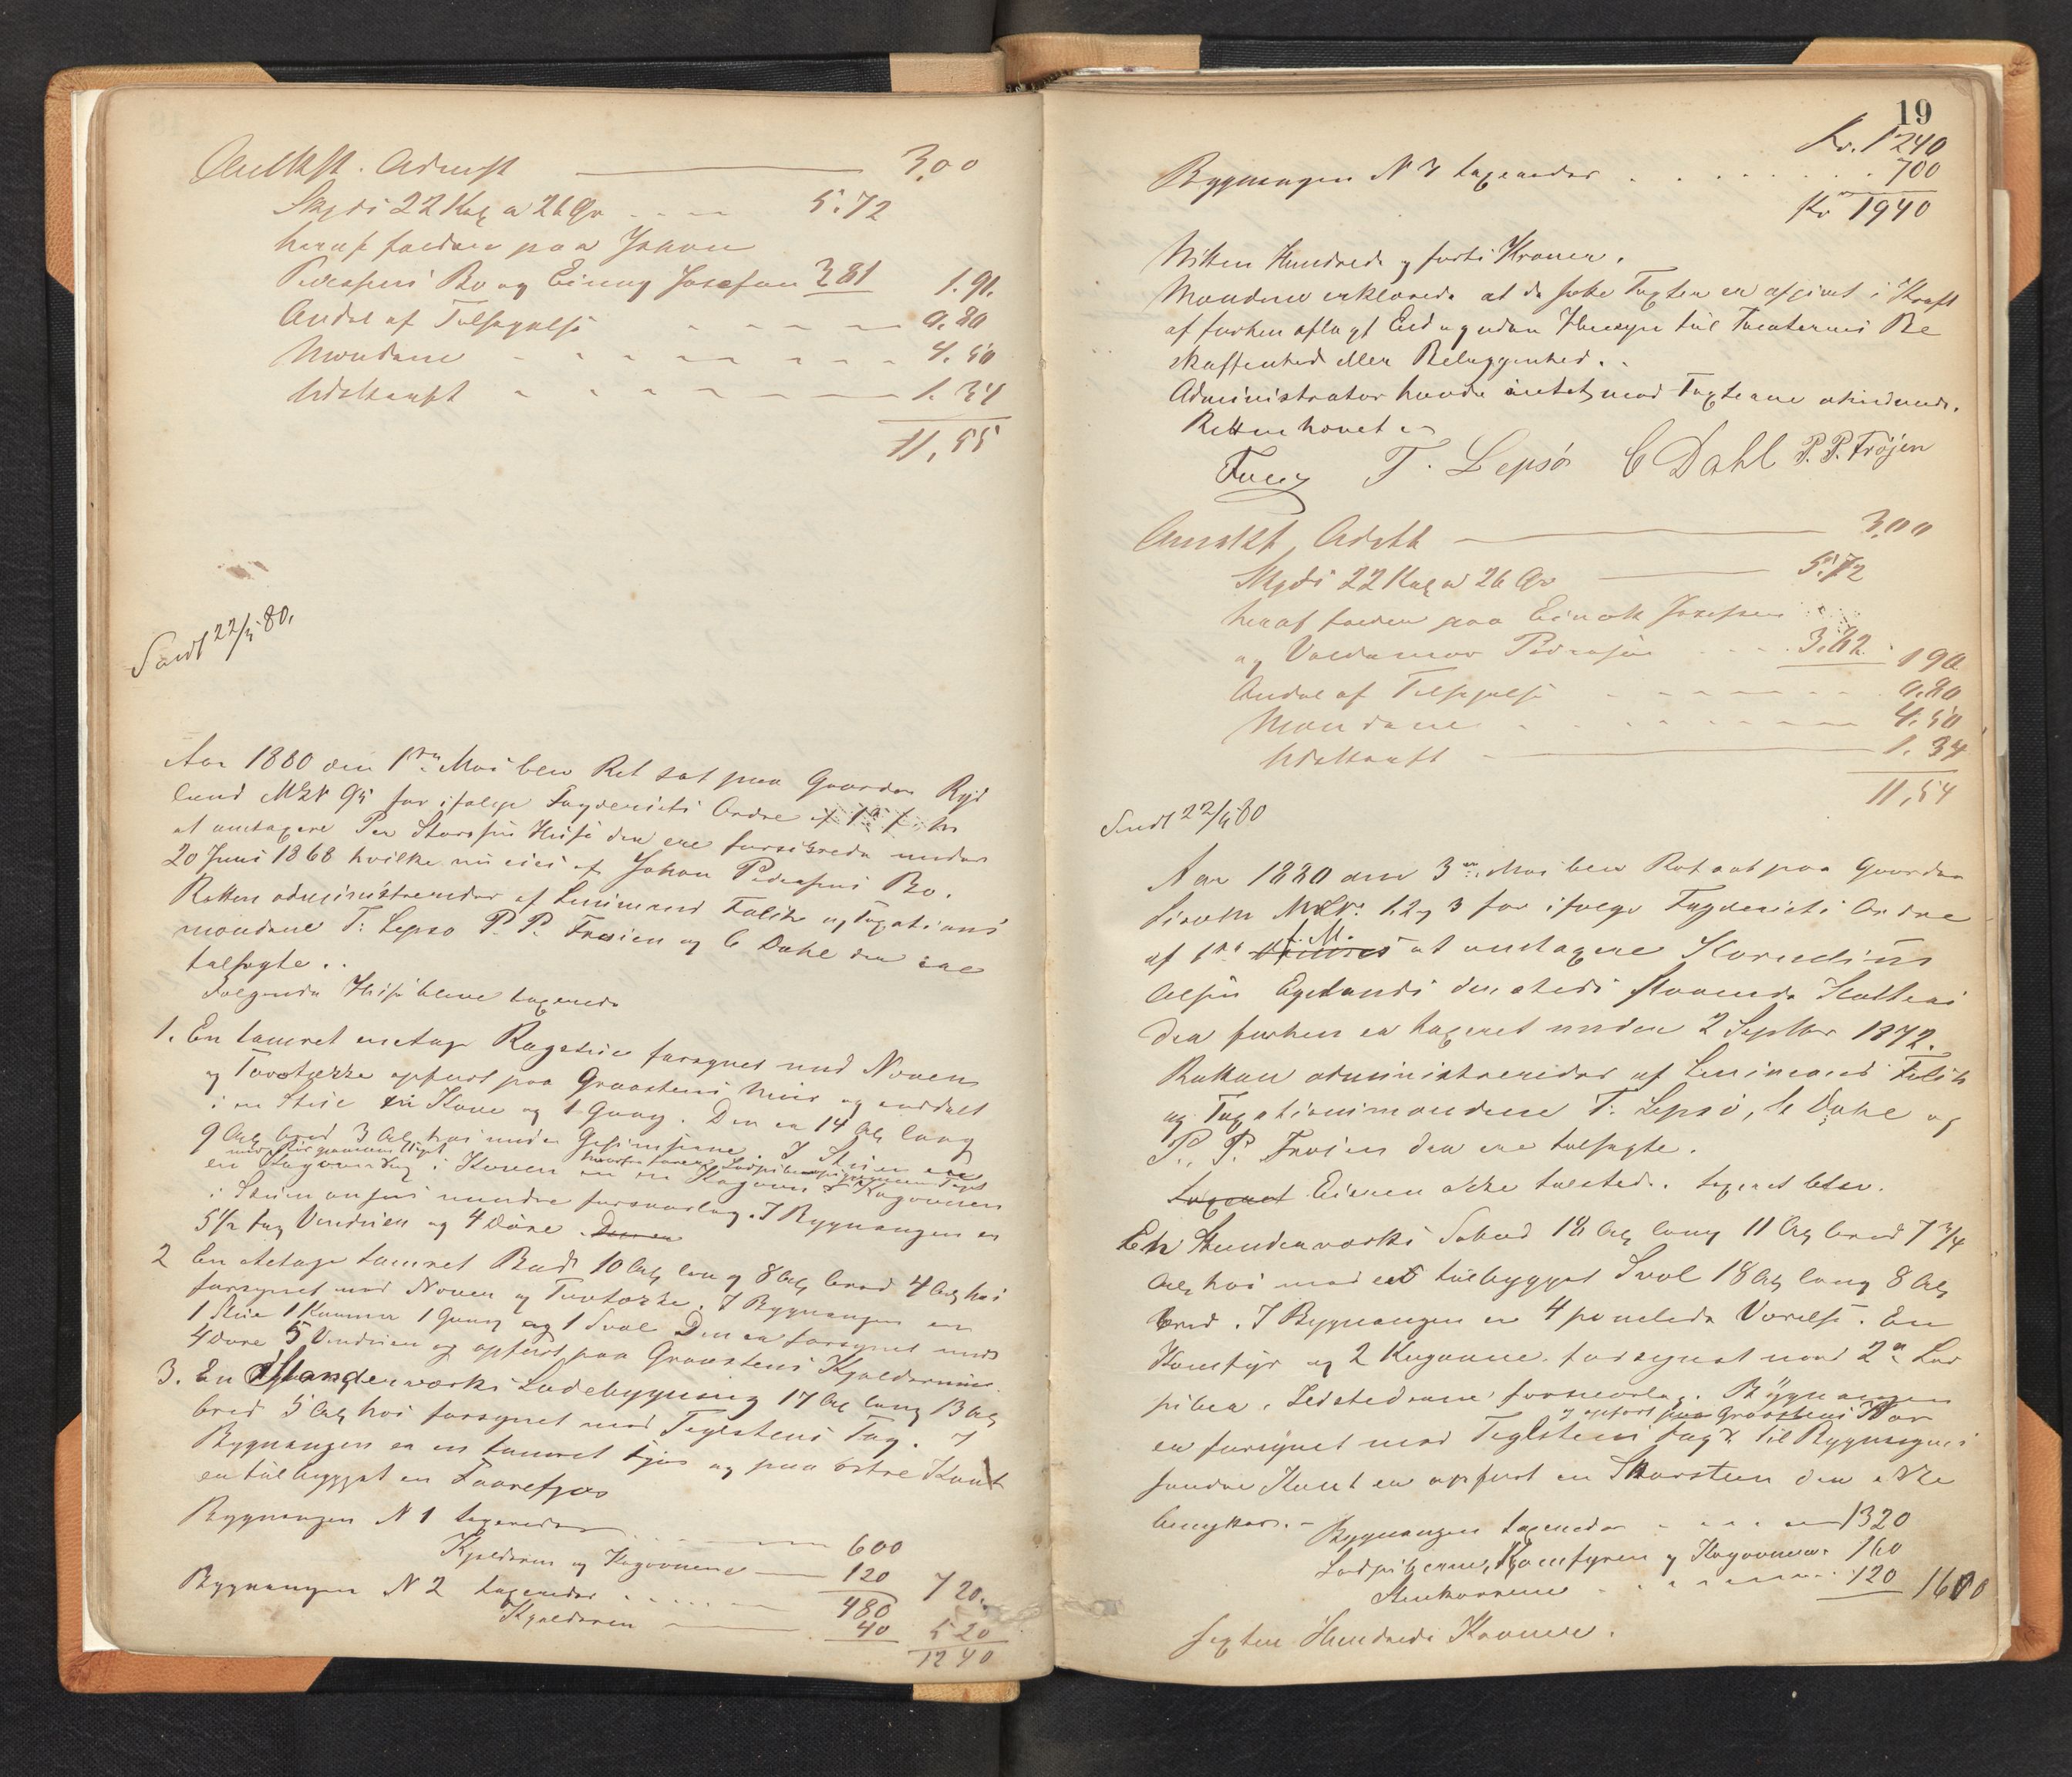 Admst. 3,00
Skyds 22 Kil a 26 Ør 5.72
heraf falder paa Johan
Pedersens Bo og Josefsen 381 1.91.
Andel af Tilsigelse 0.80
Mændene 4.50
Udskrift 1.34
11,55
Sendt 22/5 80.
Aar 1880 den 1ste Mai blev Ret sat paa Gaarden Ryt
land MN 95 for ifølge Fogderiets Ordre af 1ste f. M.
at omtaxere Per Storesens Huse der ere forsikrede under
20 Juni 1868 hvilke nu eies af Johan Pedersens Bo.
Retten administreredes af Lensmand Falch og Taxations
mændene T. Lepsø P. P. Frøien og C Dahl der ere
tilsagte.
Følgende Huse bleve taxerede
1. En tømret enetage Røgstue forsynet med Noven
og Torvtække opført paa Graastens Muur og inddelt
i en Stue en Kove og 1 Gang. Den er 14 Al lang
9 Al bred 3 Al høi under Gesimserne. I Stuen er
en Kagovn i Koven en Kagovn Kagovnen
i Stuen mindre forsvarlig. I Bygningen er
5 1/2 fag Vinduer og 4 Døre. Den er
2 En Aetage tømret Bud 10 Al lang 8 Al bred 4 Al høi
forsynet med Noven og Torvtække. I Bygningen er
1 Stue 1 Kammer 1 Gang og 1 Sval Den er forsynet med
4 Døre 5 Vinduer og opført paa Graastens Kjeldermuur.
3. En Stenderværks Ladebygning 17 Al lang 13 Al
bred 5 Al høi forsynet med Teglstens Tag. I
Bygningen er en tømret Fjøs og paa østre Kant
er tilbygget en Faarefjøs
Bygningen N 1 taxeredes 600
Kjelderen og Kagovnene 120 720.
Bygningen N 2 taxeredes 480
Kjelderen 40 520
1240
19
Kr. 1240
Bygningen N 3 taxeredes 700
Kr 1940
Nitten Hundrede og forti Kroner.
Mændene erklærede at de Taxten er afgivet i Kraft
af forhen aflagt Eed og uden Hensyn til Tomternes Be
skaffenhed eller Beliggenhed.
Administrator havde intet mod Taxterne at erindre.
Retten hævet
T. Lepsø C Dahl P. P. Frøjen
3,00
Skyds 22 Kil a 26 Ør 5.72
heraf falder paa Josefsen
og Valdemar Pedersen 3.82 190
Andel af Tilsigelse 0.80
Mændene 4.50
Udskrift 1.34
11,54
Sendt 22/5 80
Aar 1880 den 3die Mai blev Ret sat paa Gaarden
MN. 1,2 og 3 for ifølge Fogderiets Ordre
f. M.
af 1ste at omtaxere Kornelius
Olsen Egelands der, steds staaende Hotteri
der forhen er taxeret under 2 Septbr 1872.
Retten administreredes af Lensmand Falch
og Taxationsmændene T. Lepsø, C Dahl og
P. P. Frøien der ere tilsagte.
Taxeret Eieren ikke tilstede. Taxeret blev.
Et Stenderværks Søbod 18 Al lang 11 Al bred 7 3/4
Al høi med et tilbygget Sval 18 Al lang 8 Al
bred. I Bygningen er 4 panelede Værelser. En
Komfyr og 2 Kagovne forsynet med 2de Lod
piber. Ildstederne forsvarlig. Bygningen
og opført paa Graastens Kar
er forsynet med Teglstens tag. Til Bygningens
søndre Kant er opført en Skorsteen der ikke
benyttes. Bygningen taxeredes 1320
Lodpiberne, Komfyren og Kagovnene 160
Steenkarrene 120 1600
Sexten Hundrede Kroner.